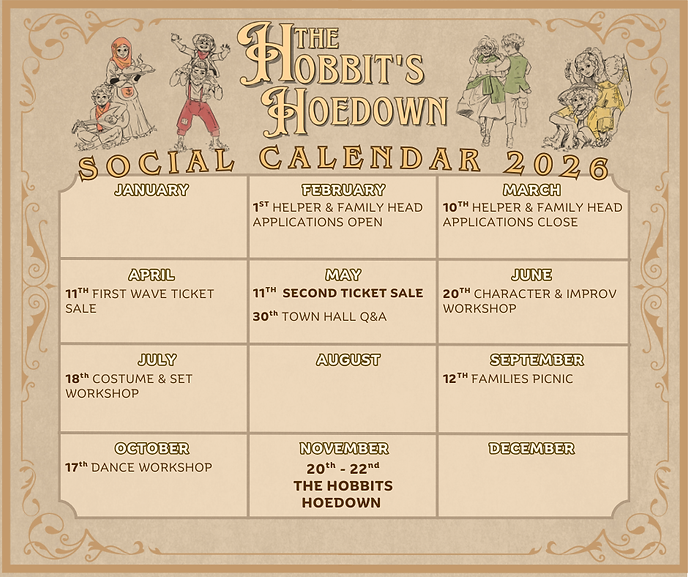 THE
HOBBIT'S
HOEDOWN
SOCIAL CALENDAR 2026
JANUARY
FEBRUARY
1ST HELPER & FAMILY HEAD
APPLICATIONS OPEN
MARCH
10TH HELPER & FAMILY HEAD
APPLICATIONS CLOSE
APRIL
11TH FIRST WAVE TICKET
SALE
MAY
11TH SECOND TICKET SALE
30th TOWN HALL Q&A
JUNE
20TH CHARACTER & IMPROV
WORKSHOP
JULY
18th COSTUME & SET
WORKSHOP
AUGUST
SEPTEMBER
12TH FAMILIES PICNIC
OCTOBER
17th DANCE WORKSHOP
NOVEMBER
20th - 22nd
THE HOBBITS
HOEDOWN
DECEMBER